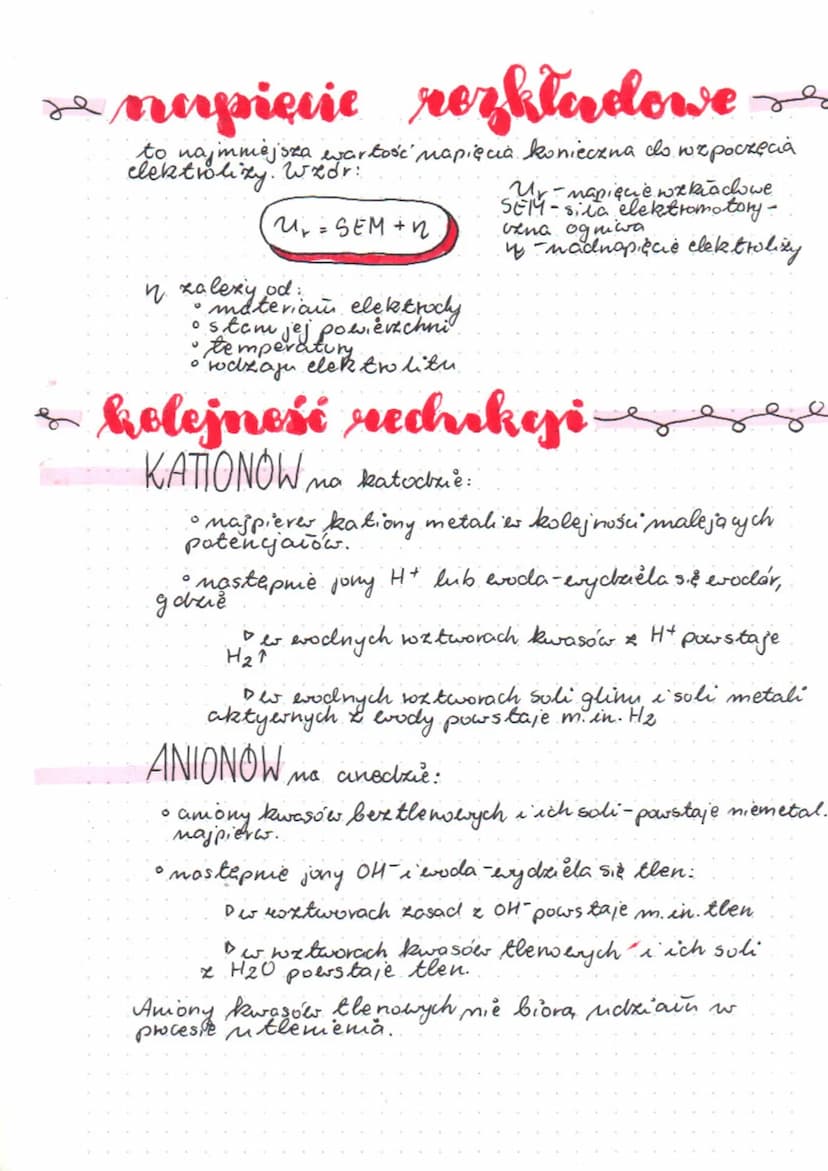 napięcie rozkładowe
to najmniejsza wartość napięcia konieczna do rozpoczęcia
elektrolizy. Wzór:
Ur = SEM + η
Ur - napięcie rozkładowe
SEM - siła elektromotory-
czna ogniwa
η - nadnapięcie elektrolizy
η zależy od:
° materiału elektrody
° stanu jej powierzchni
° temperatury
° rodzaju elektrolitu
kolejność redukcji
KATIONÓW na katodzie:
° najpierw kationy metali w kolejności malejących
potencjałów.
° następnie jony H+ lub woda - wydziela się wodór,
gdzie
▷ w wodnych roztworach kwasów z H+ powstaje
H2↑
▷ w wodnych roztworach soli glinu i soli metali
aktywnych z wody powstaje m.in. H2
ANIONÓW na anodzie:
° aniony kwasów beztlenowych i ich soli - powstaje niemetal.
najpierw.
° następnie jony OH- i woda - wydziela się tlen:
▷ w roztworach zasad z OH- powstaje m.in. tlen
▷ w roztworach kwasów tlenowych i ich soli
z H2O powstaje tlen.
Aniony kwasów tlenowych nie biorą udziału w
procesie utlenienia.